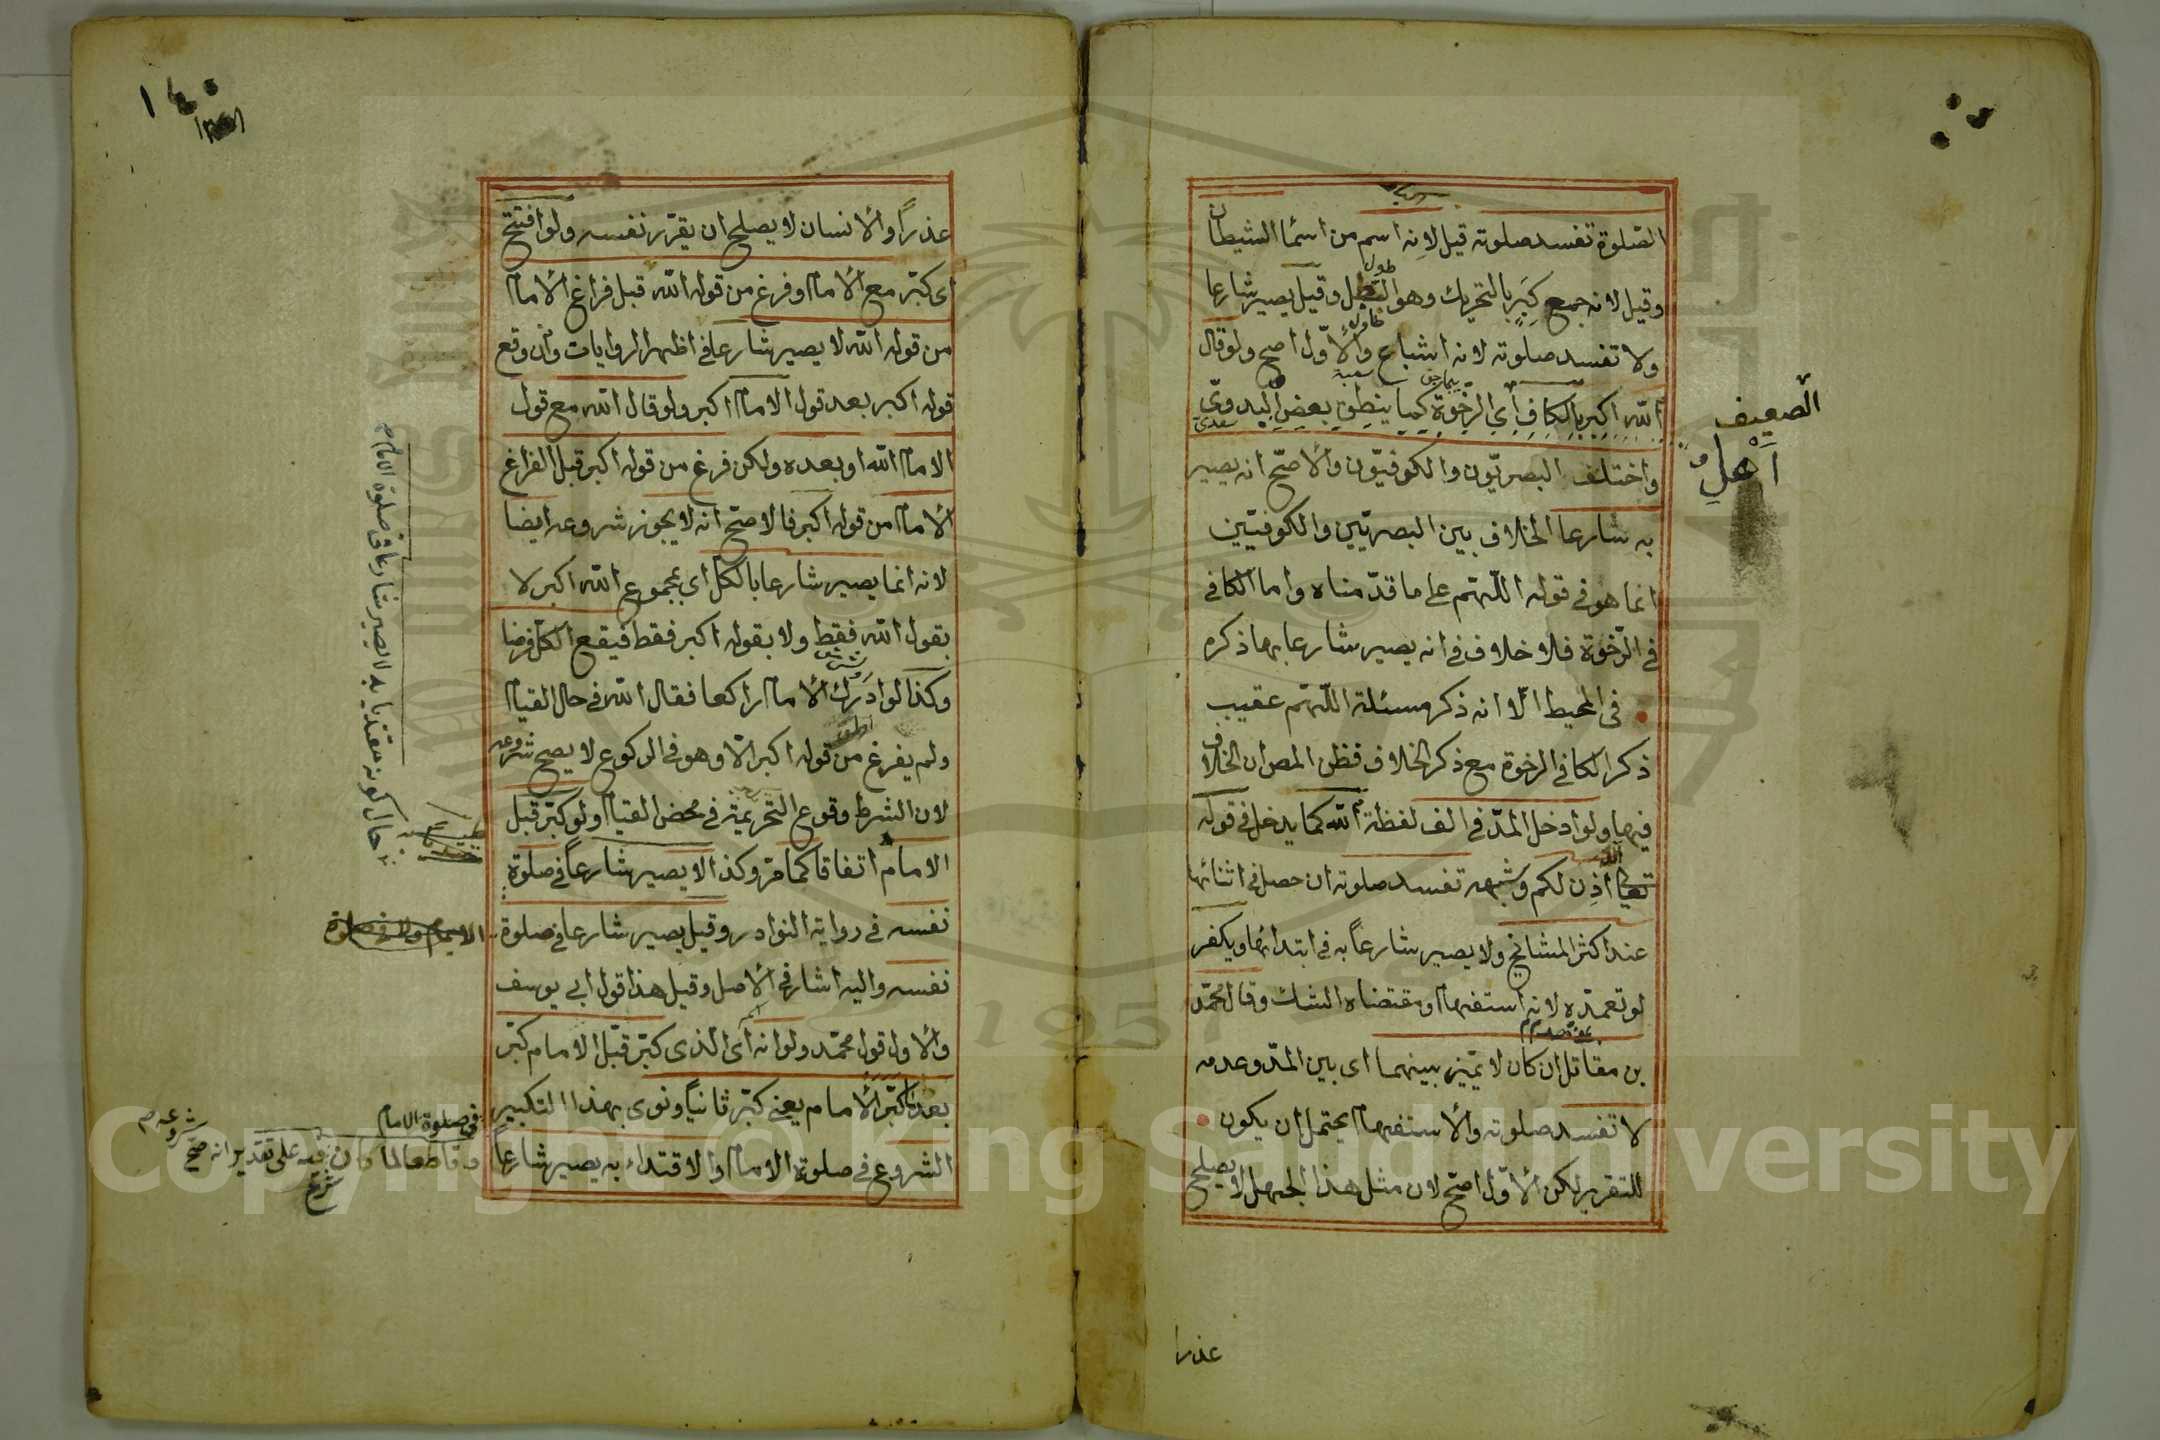 الصلوة تفسد صلوته قيل لانه اسم من اسما الشيطان
وقيل لانه جمع كَبَر بالتحريك وهو الطبل وقيل يصير شارعا
ولا تفسد صلوته لانه اشباع والأول اصح ولو قال
الله اكبر بالكاف أي الرّخوة كما ينطق بعض البدوي
واختلف البصريّون والكوفيّون والأصحّ انه يصير
به شارعا الخلاف بين البصريّين والكوفيّين
انما هو في قوله اللّهمّ على ما قدّمناه واما الكافي
في الرّخوة فلا خلاف في انه يصير شارعا بها ذكره
في المحيط الّا انه ذكر مسئلة اللّهمّ عقيب
ذكر الكافي الرخوة مع ذكر الخلاف فظن المص ان الخلاف
فيها ولو ادخل المدّ في الف لفظة الله كما يدخل في قوله
تعا الله اذن لكم وشبهه تفسد صلوته ان حصل في اثنائها
عند اكثر المشائخ ولا يصير شارعاً به في ابتدائها ويكفر
لو تعمّده لانه استفهام ومقتضاه الشك وقال محمّد
بن مقاتل ان كان لا يميّز بينهما اى بين المدّ وعدمه
لا تفسد صلوته والأستفهام يحتمل ان يكون
للتقرير لكن الأوّل اصحّ لان مثل هذا الجهل لا يصلح
عذرا
الضعيف
اهل
عذراً والأنسان لا يصلح ان يقرّر نفسه ولو افتتح
اى كبّر مع الأمام وفرغ من قوله الله قبل فراغ الأمام
من قوله الله لا يصير شارعا في اظهر الروايات وأن وقع
قوله اكبر بعد قول الامام اكبر ولو قال الله مع قول
الامام الله او بعده ولكن فرغ من قوله اكبر قبل الفراغ
الأمام من قوله اكبر فالاصحّ انه لا يجوز شروعه ايضا
لانه انما يصير شارعا بالكل اى بمجموع الله اكبر لا
بقول الله فقط ولا بقوله اكبر فقط فيقع الكل فرضا
وكذا لو ادرك الأمام راكعا فقال الله في حال القيام
ولم يفرغ من قوله اكبر الّا وهو في الركوع لا يصح شروعه
لان الشرط وقوع التحريمة في محض القيام ولو كبّر قبل
الامام اتفاقا كما مرّ وكذا لا يصير شارعاً في صلوة
نفسه في رواية النوادر وقيل يصير شارعا في صلوة
نفسه واليه اشار في الأصل وقيل هذا قول ابي يوسف
والأول قول محمّد ولو انه أى الذى كبّر قبل الامام كبّر
بعد ما كبّر الأمام يعني كبّر ثانياً ونوى بهذا التكبير
الشروع في صلوة الامام والاقتداء به يصير شارعاً
حال كونه مقتديا به لا يصير شارعا في صلوة الامام
في صلوة الامام
وقاطعا لما كان فيه على تقدير انه صحّ
شروعه
Copyright © King Saud University
1957